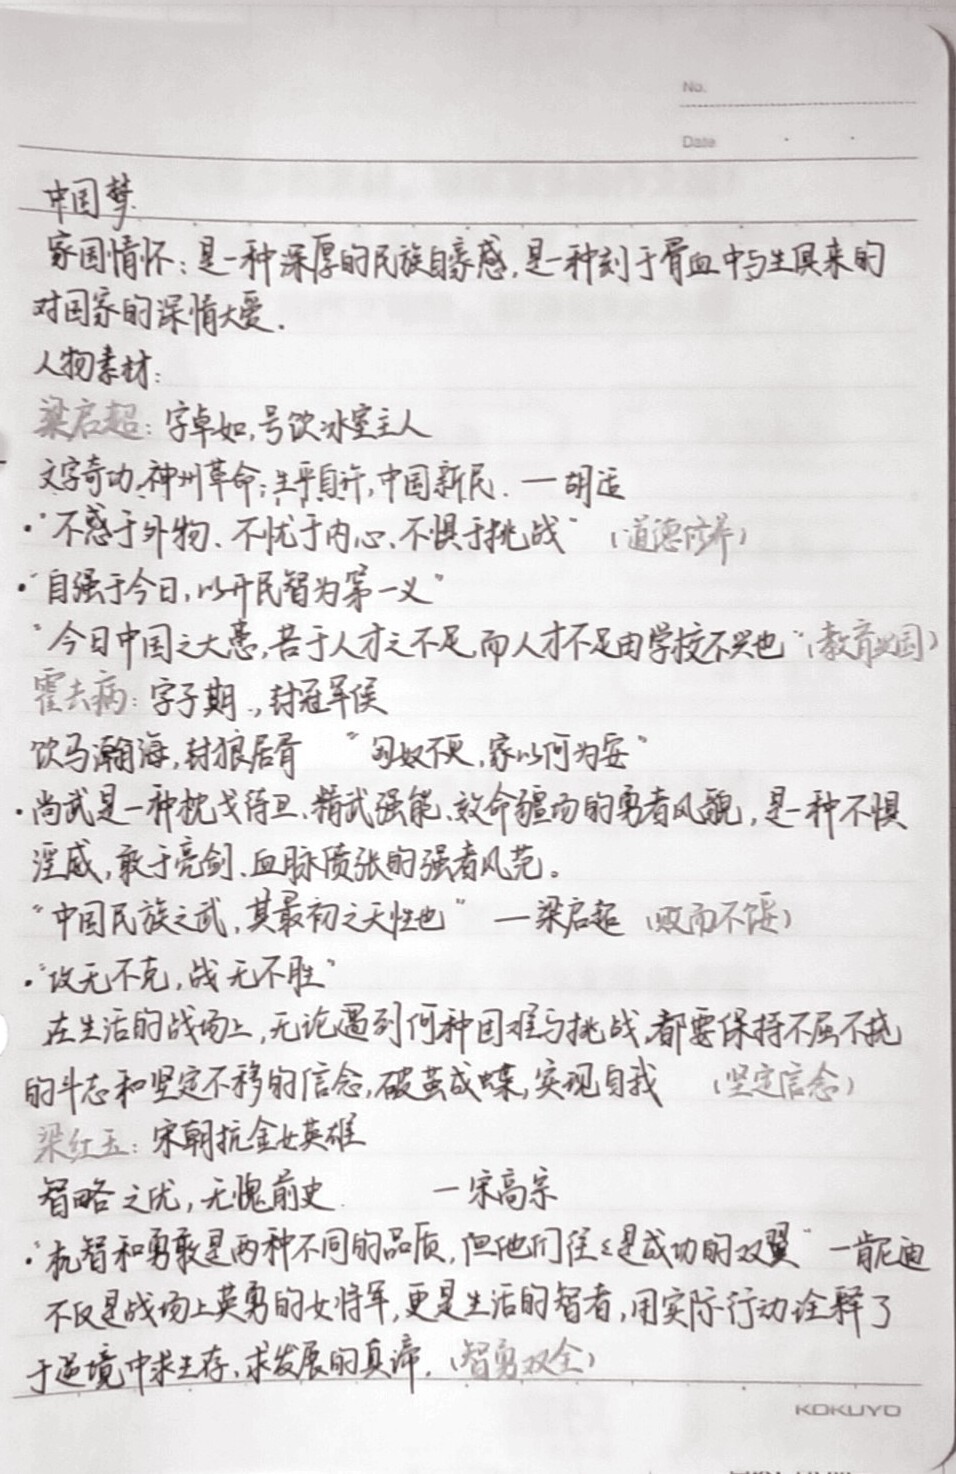 No.
Date
中国梦
家国情怀：是一种深厚的民族自豪感，是一种刻于骨血中与生俱来的
对国家的深情大爱．
人物素材：
梁启超：字卓如，号饮冰室主人
文字奇功，神州革命；生平自许，中国新民．—胡适
·“不惑于外物、不忧于内心、不惧于挑战”（道德修养）
·“自强于今日，以开民智为第一义”
“今日中国之大患，苦于人才之不足，而人才不足由学校不兴也”（教育兴国）
霍去病：字子期．，封冠军侯
饮马瀚海，封狼居胥 “匈奴不灭，家以何为安”
·尚武是一种枕戈待卫、精武强能、效命疆场的勇者风貌，是一种不惧
淫威，敢于亮剑、血脉偾张的强者风范。
“中国民族之武，其最初之天性也” —梁启超（败而不馁）
·“攻无不克，战无不胜”
在生活的战场上，无论遇到何种困难与挑战，都要保持不屈不挠
的斗志和坚定不移的信念，破茧成蝶，实现自我 （坚定信念）
梁红玉：宋朝抗金女英雄
智略之优，无愧前史． —宋高宗
·“机智和勇敢是两种不同的品质，但他们往々是成功的双翼”—肯尼迪
不仅是战场上英勇的女将军，更是生活的智者，用实际行动诠释了
于逆境中求生存、求发展的真谛．（智勇双全）
KOKUYO